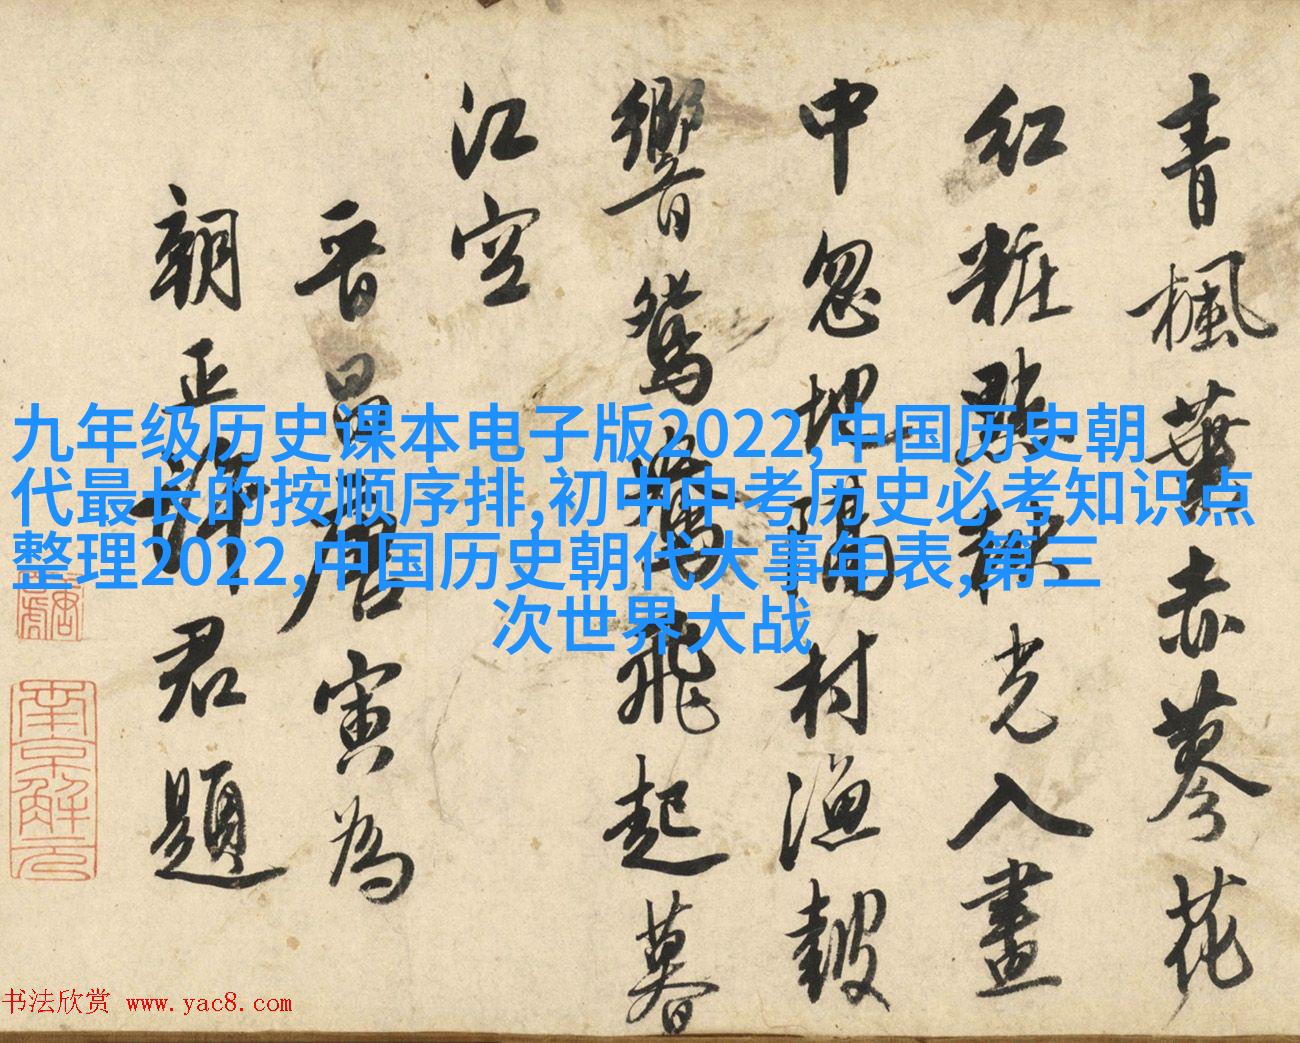 青楓葉赤蓼花
紅粧點秋光入畫
中忽地隔村漁皷
響鴛鴦飛起暮
江空
晉昌唐寅為
朝正君題
南京解元
九年级历史课本电子版2022,中国历史朝
代最长的按顺序排,初中中考历史必考知识点
整理2022,中国历史朝代大事年表,第三
次世界大战
书法欣赏 www.yac8.com